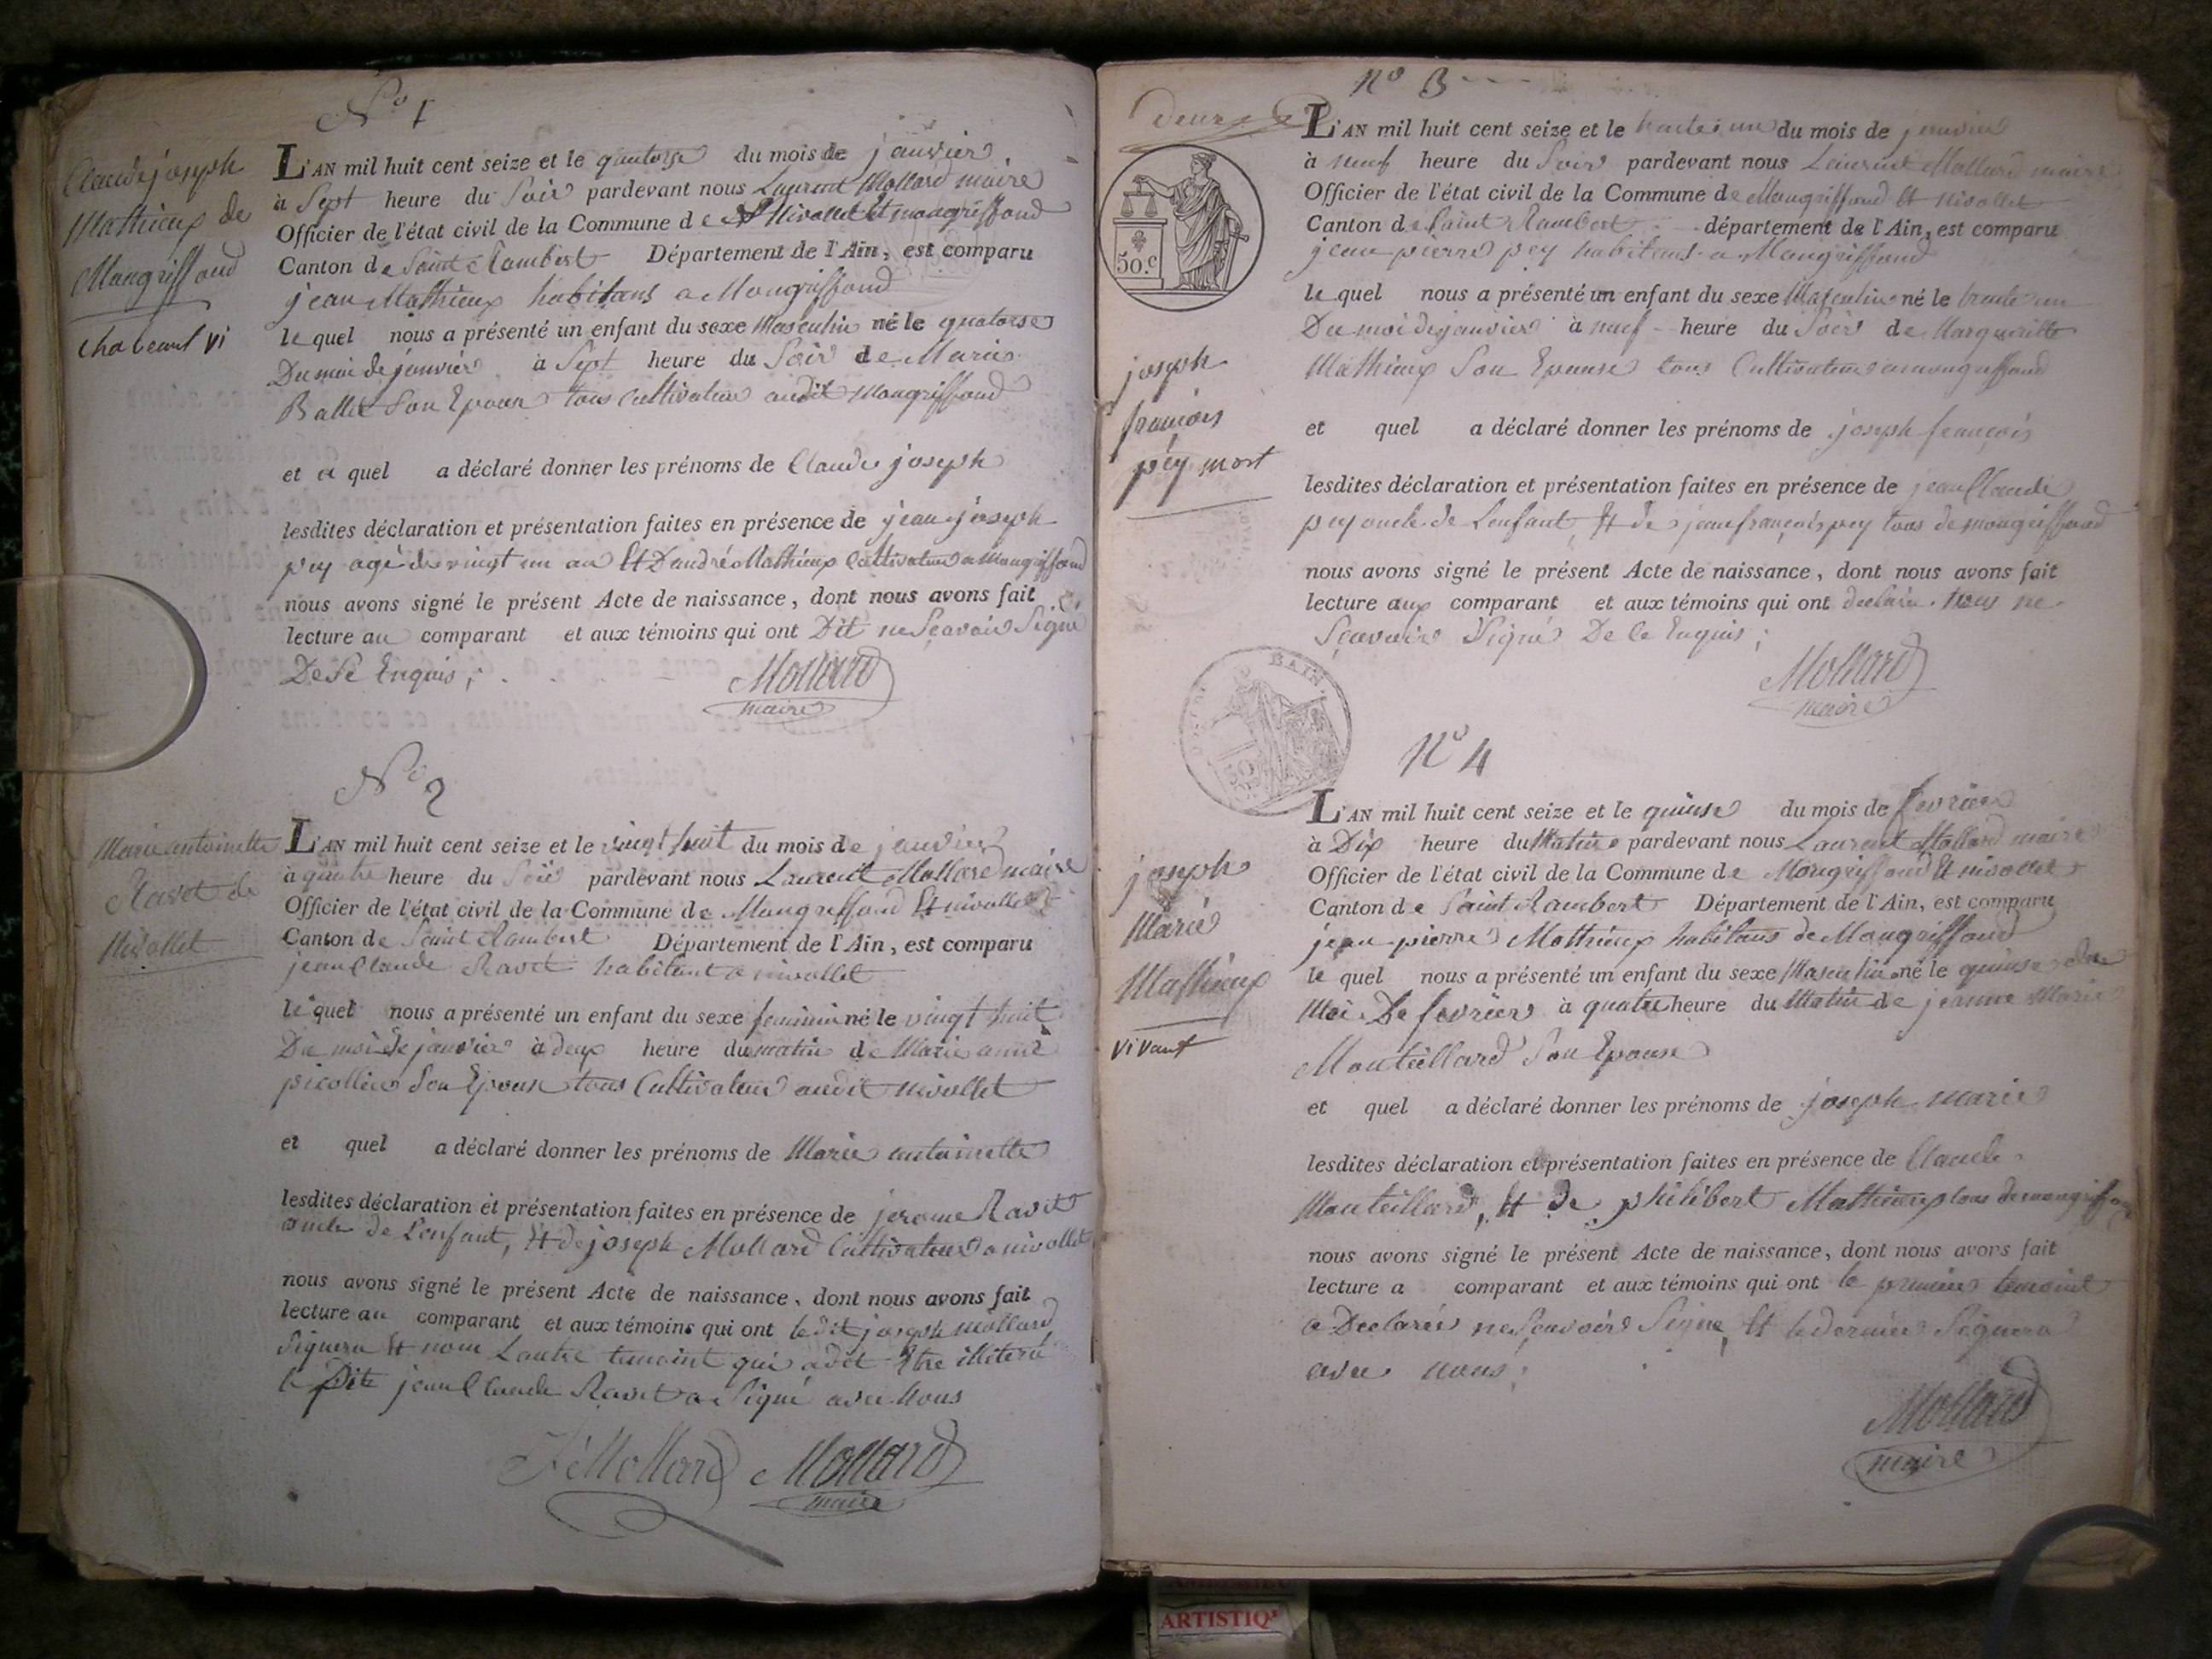 N° 1
Claude joseph
Mathieux de
Mongriffond
chabeaul vi
L'AN mil huit cent seize et le quatorse du mois de janvier
à Sept heure du Soir pardevant nous Laurent Mollard maire
Officier de l'état civil de la Commune de Nivollet et mongriffond
Canton de Saint Rambert Département de l'Ain, est comparu
jean Mathieux habitans a Mongriffond
le quel nous a présenté un enfant du sexe Masculin né le quatorse
Du moi de janvier à Sept heure du Soir de Marie
Ballet Son Epouse tous Cultivateur audit Mongriffond
et a quel a déclaré donner les prénoms de Claude joseph
lesdites déclaration et présentation faites en présence de jean joseph
pey agé de vingt un an Et D'andré Mathieux Cultivateur a Mongriffond
nous avons signé le présent Acte de naissance, dont nous avons fait
lecture au comparant et aux témoins qui ont Dit ne Sçavoir Signé
De Se Enquis;
Mollard
maire
N° 2
Marie antoinette
Ravet de
Nivollet
L'AN mil huit cent seize et le vingt huit du mois de janvier
à quatre heure du Soir pardevant nous Laurent Mollard maire
Officier de l'état civil de la Commune de Mongriffond Et nivollet
Canton de Saint Rambert Département de l'Ain, est comparu
jean Claude Ravet habitant a nivollet
le quel nous a présenté un enfant du sexe feminin né le vingt huit
Du moi de janvier à deux heure du matin de Marie anne
picollier Son Epouse tous Cultivateur audit nivollet
et quel a déclaré donner les prénoms de Marie antoinette
lesdites déclaration et présentation faites en présence de jerome Ravet
oncle de Lenfant, Et de joseph Mollard Cultivateur a nivollet
nous avons signé le présent Acte de naissance, dont nous avons fait
lecture au comparant et aux témoins qui ont ledit joseph Mollard
Signera Et nom Lautre temoint qui a dit Etre illiteré
le Dite jean Claude Ravet a Signé avec Nous
J Mollard Mollard
maire
N° 3
deux
50.c
joseph
francois
pey mort
L'AN mil huit cent seize et le trante un du mois de janvier
à neuf heure du Soir pardevant nous Laurent Mollard maire
Officier de l'état civil de la Commune de Mongriffond Et Nivollet
Canton de Saint Rambert département de l'Ain, est comparu
jean pierre pey habitans a Mongriffond
le quel nous a présenté un enfant du sexe Masculin né le trante un
Du moi de janvier à neuf heure du Soir de Margueritte
Mathieux Son Epouse tous Cultivateur a mongriffond
et quel a déclaré donner les prénoms de joseph françois
lesdites déclaration et présentation faites en présence de jean Claude
pey oncle de Lenfant, Et de jean françois pey tous de mongriffond
nous avons signé le présent Acte de naissance, dont nous avons fait
lecture aux comparant et aux témoins qui ont declaré tous ne
Sçavoir Signé De ce Enquis;
Mollard
maire
N° 4
joseph
Marie
Mathieux
vivant
L'AN mil huit cent seize et le quinse du mois de fevrier
à Dix heure du Matin pardevant nous Laurent Mollard maire
Officier de l'état civil de la Commune de Mongriffond Et nivollet
Canton de Saint Rambert Département de l'Ain, est comparu
jean pierre Mathieux habitans de Mongriffond
le quel nous a présenté un enfant du sexe Masculin né le quinse du
Moi De fevrier à quatre heure du Matin de jeanne Marie
Monteillard Son Epouse
et quel a déclaré donner les prénoms de joseph marie
lesdites déclaration et présentation faites en présence de Claude
Monteillard, Et De philibert Mathieux tous de mongriffond
nous avons signé le présent Acte de naissance, dont nous avons fait
lecture a comparant et aux témoins qui ont le premier temoint
a Declarée ne Sçavoir Signe, Et le dernier Signera
avec nous;
Mollard
maire
ARTISTIQ